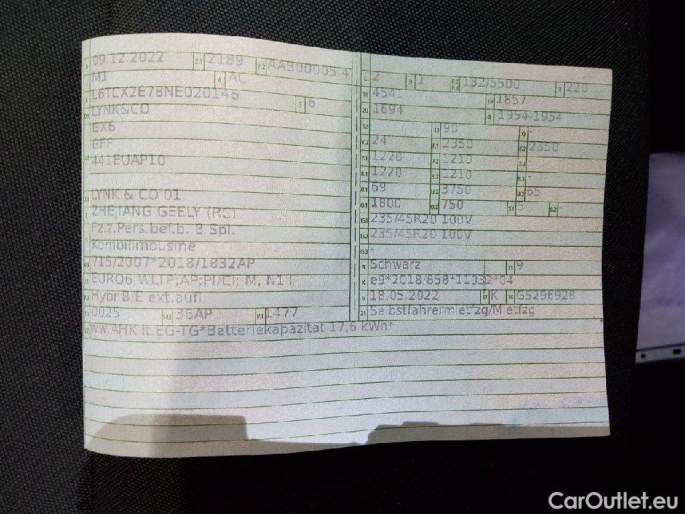 09.12.2022 2189 AAS00005 4
M1 AC
L6TCX2E78NE020146 6
LYNK&CO
CX6
441EUAP10
LYNK & CO 01
ZHEJIANG GEELY (RC)
Fz.z.Pers.bef.b. 8 Spl.
Kombilimousine
715/2007*2018/1832AP
EURO6 WLTP;AP;PI/CI; M, N1 I
Hybr.B/E ext.aufl
0025 36AP 1477
ww.AHK lt.EG-TG*Batteriekapazität 17,6 kWh*
2 1 132/5500 220
4541 1857
1694 1954-1954
90 -
24 2350 2350
1220 1210 -
1220 1210 -
69 3750 65
1800 750 5 -
235/45R20 100V
235/45R20 100V
-
Schwarz 9
e9*2018/858*11032*04
18.05.2022 K GS296928
Selbstfahrermietfzg/Mietfzg
CarOutlet.eu